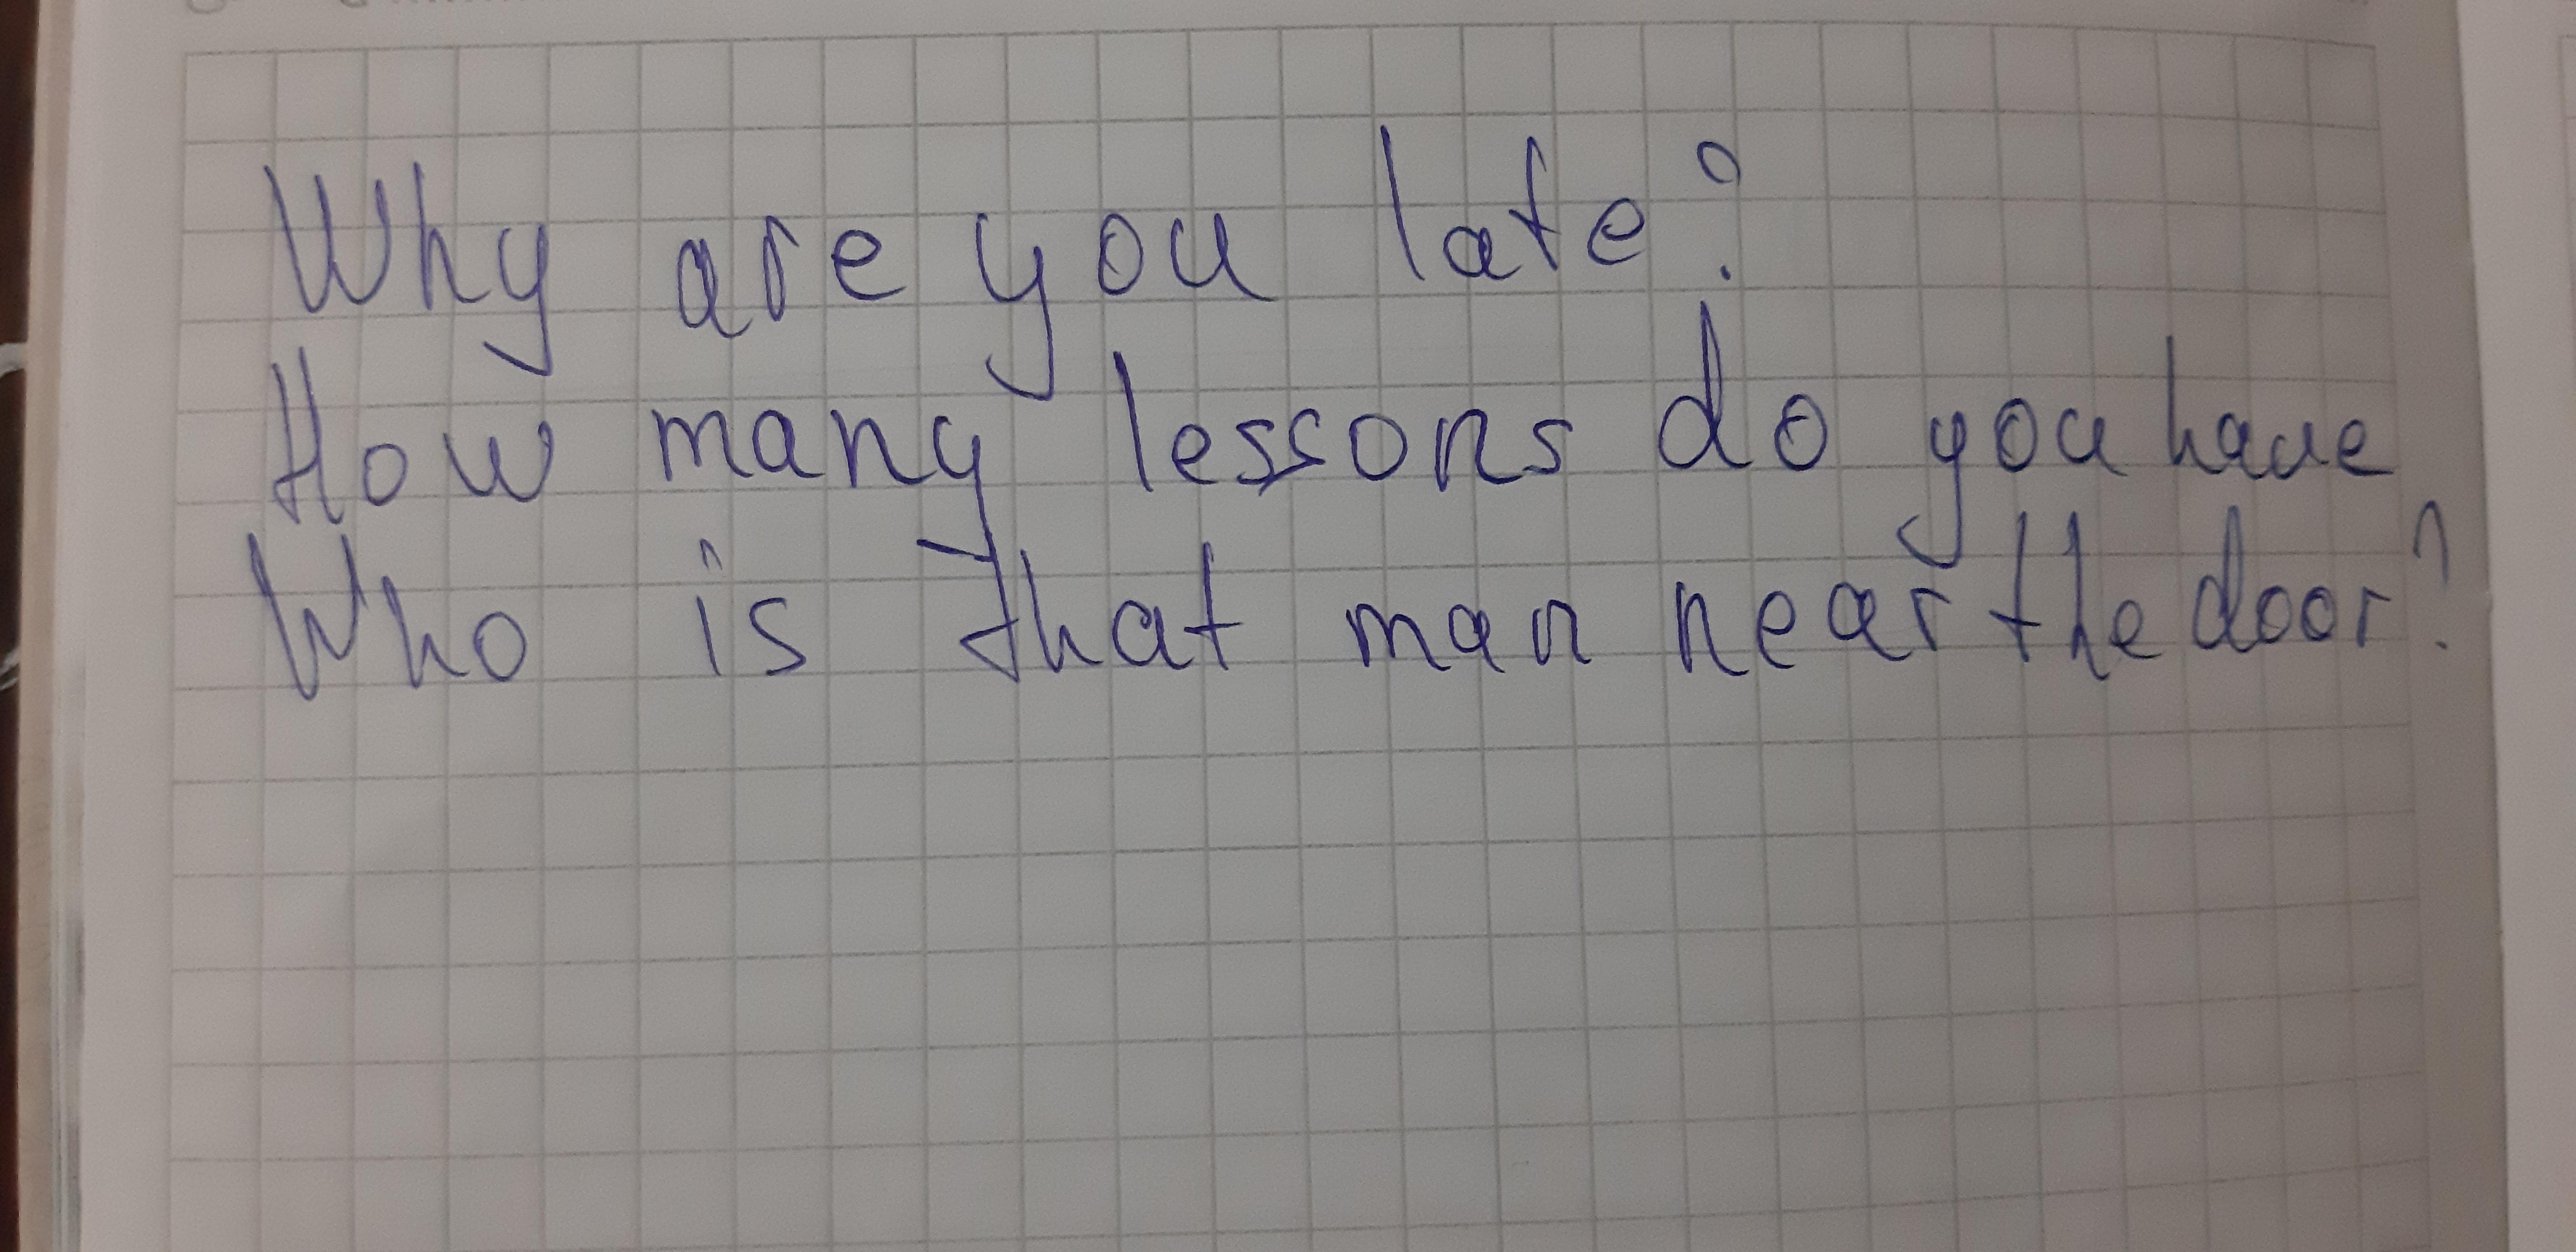 Why are you late?
How many lessons do you have
Who is that man near the door?